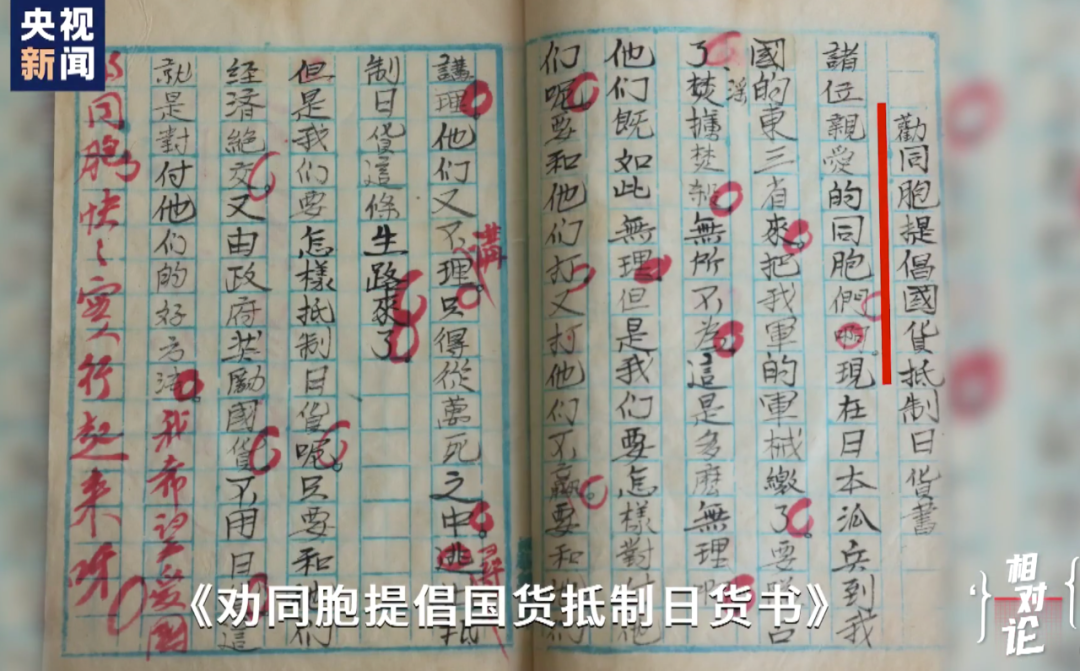 央视
新闻
勸同胞提倡國貨抵制日貨書
諸位親愛的同胞們啊現在日本派兵到我
國的東三省來把我軍的軍械繳了要隘占
了、淫
焚擄焚殺無所不為這是多麼無理呢
他们既如此無理但是我们要怎樣對付他
们呢要和他们打又打他们不贏要和他们
講理他们又不理只得從萬死之中逃抵
講
尋
制日貨這條生路來了
但是我们要怎樣抵制日貨呢。只要和他们
経済絶交又由政府奖勵國貨不用日這
就是對付他们的好方法。我希望爱國
的同胞快々实行起来呀
《劝同胞提倡国货抵制日货书》
相对论